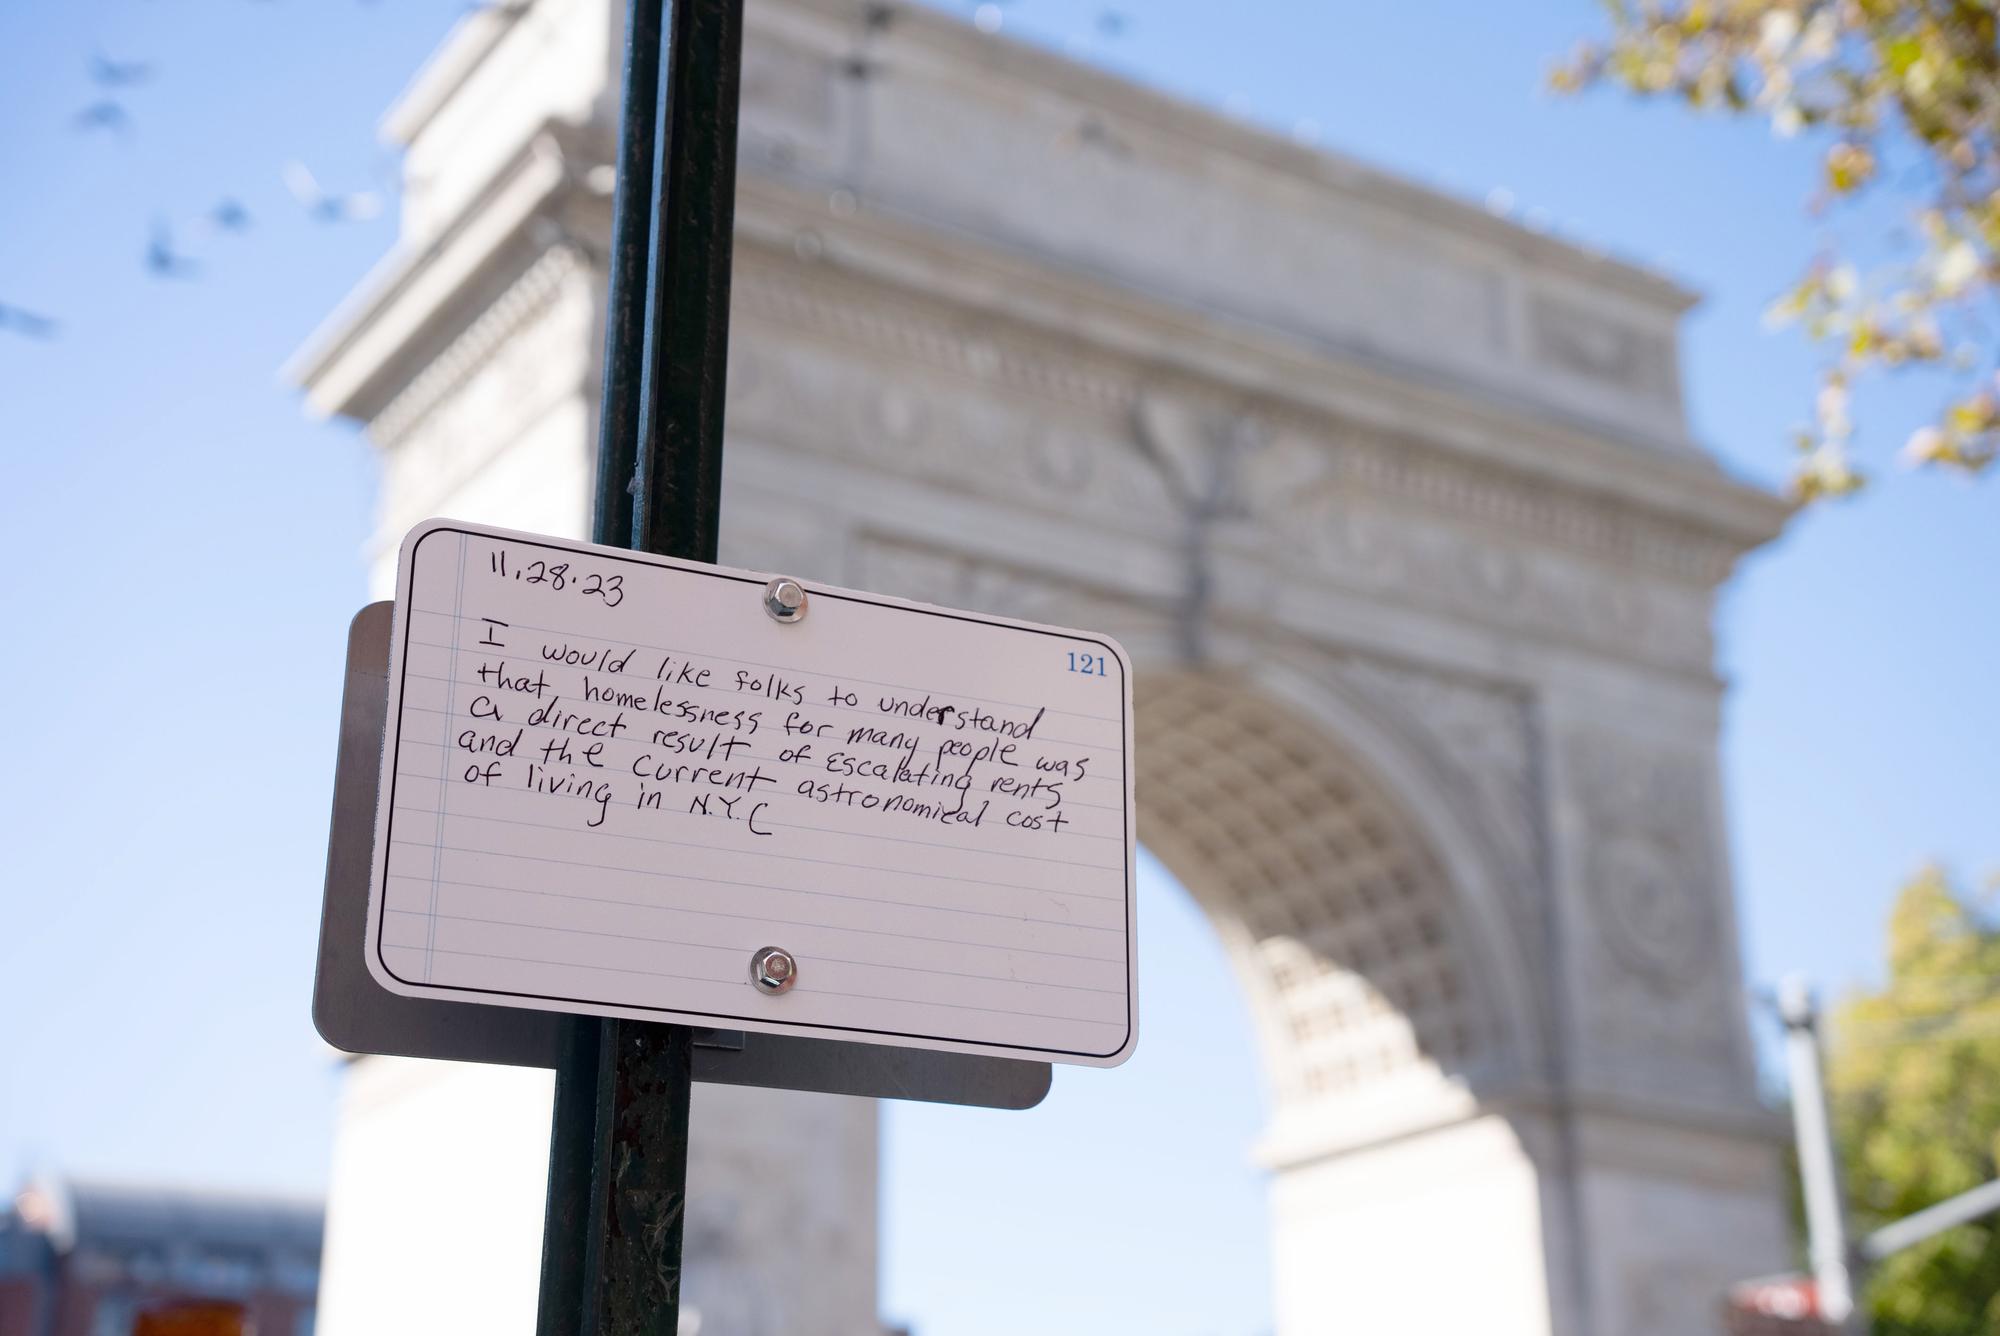 11.28.23
121
I would like folks to understand
that, homelessness for many people was
a direct result of escalating rents
and the current astronomical cost
of living in N.Y.C